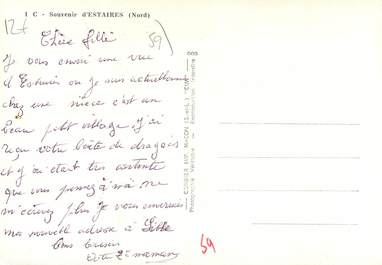 1 C - Souvenir d'ESTAIRES (Nord)
12t
59
Chère fille
Je vous envoi une vue
d'Estaires ou Je suis actuellement
chez une niece c'est un
beau petit village, J'ai
reçu votre boîte de dragées
et J'ai était très contente
que vous pensez à moi ne
m'écrivez plus Je vous enverrais
ma nouvelle adresse à Lille
bons baisers
Votre 2è maman
COMBIER IMP. MACON (S.-et-L.) "CIM"
Photographie Véritable - Reproduction interdite
59